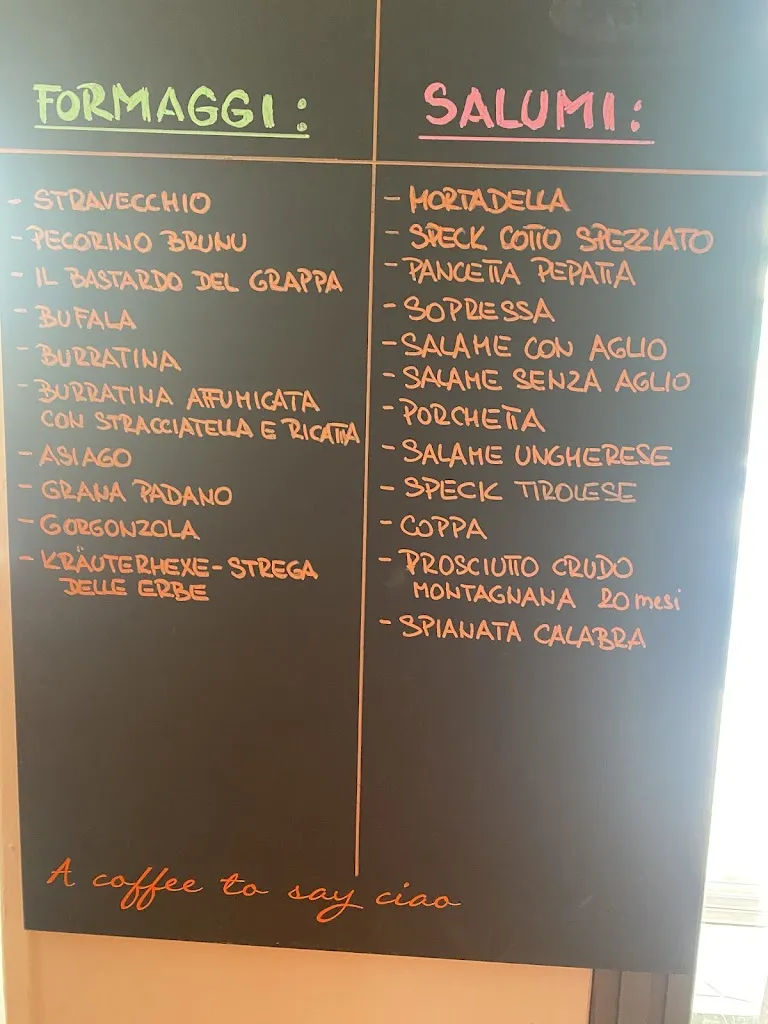 FORMAGGI:
- STRAVECCHIO
- PECORINO BRUNU
- IL BASTARDO DEL GRAPPA
- BUFALA
- BURRATINA
- BURRATINA AFFUMICATA
CON STRACCIATELLA E RICOTTA
- ASIAGO
- GRANA PADANO
- GORGONZOLA
- KRÄUTERHEXE - STREGA
DELLE ERBE
SALUMI:
- MORTADELLA
- SPECK COTTO SPEZZIATO
- PANCETTA PEPATA
- SOPRESSA
- SALAME CON AGLIO
- SALAME SENZA AGLIO
- PORCHETTA
- SALAME UNGHERESE
- SPECK TIROLESE
- COPPA
- PROSCIUTTO CRUDO
MONTAGNANA 20 mesi
- SPIANATA CALABRA
A coffee to say ciao